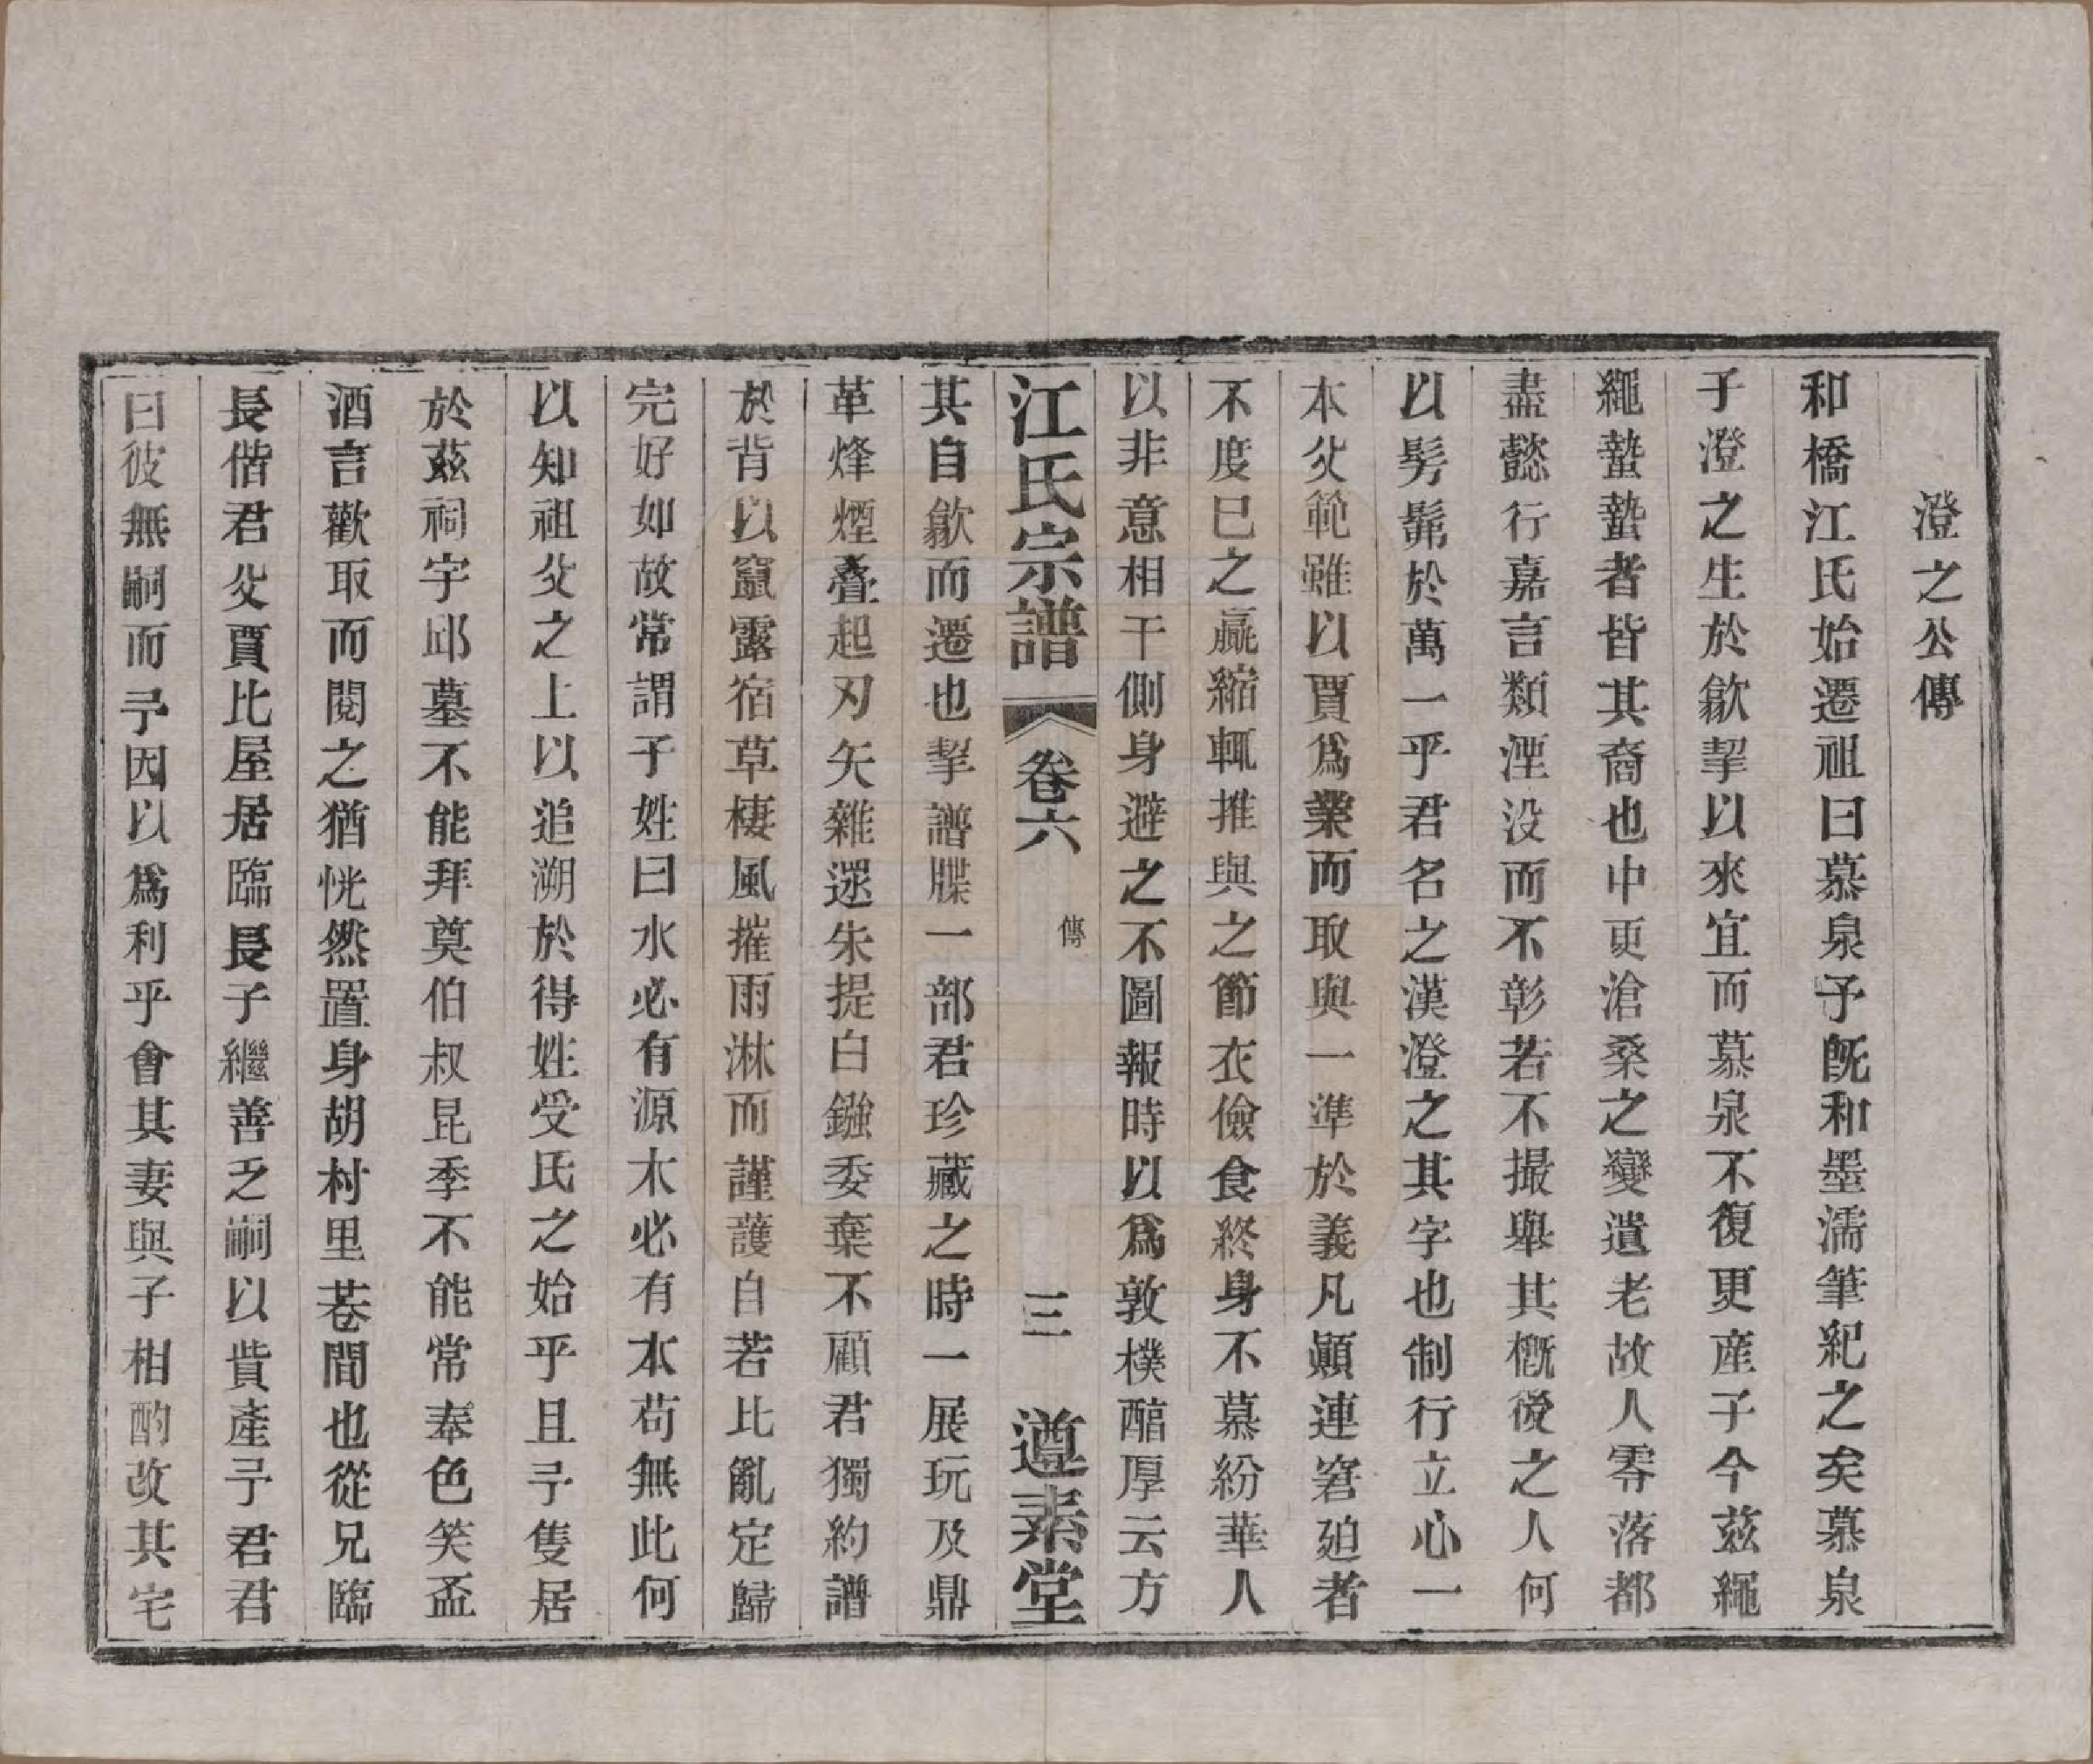 澄之公傳
和橋江氏始遷祖曰慕泉予旣和墨濡筆紀之矣慕泉
子澄之生於歙挈以來宜而慕泉不復更產子今茲繩
繩蟄蟄者皆其裔也中更滄桑之變遺老故人零落都
盡懿行嘉言類湮没而不彰若不撮舉其概後之人何
以髣髴於萬一乎君名之漢澄之其字也制行立心一
本父範雖以賈爲業而取與一準於義凡顚連窘廹者
不度已之贏縮輒推與之節衣儉食終身不慕紛華人
以非意相干側身避之不圖報時以爲敦樸醕厚云方
江氏宗譜 卷六 傳 三 遵素堂
其自歙而遷也挈譜牒一部君珍藏之時一展玩及鼎
革烽煙疊起刃矢雜遝朱提白鏹委棄不顧君獨約譜
於背以竄露宿草棲風摧雨淋而謹護自若比亂定歸
完好如故常謂子姓曰水必有源木必有本苟無此何
以知祖父之上以追溯於得姓受氏之始乎且孑隻居
於茲祠宇邱墓不能拜奠伯叔昆季不能常奉色笑盃
酒言歡取而閱之猶恍然置身胡村里巷間也從兄臨
長偕君父賈比屋居臨長子繼善乏嗣以貲產予君君
曰彼無嗣而予因以爲利乎會其妻與子相酌改其宅